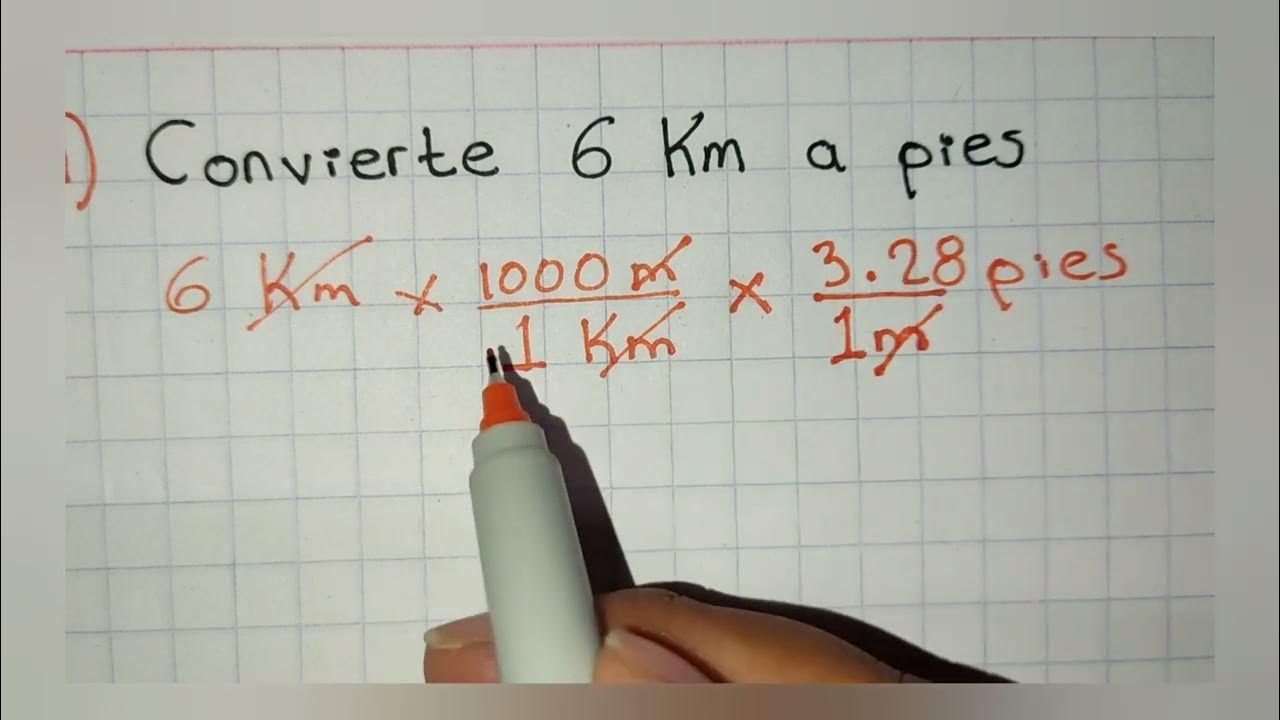 Convierte 6 Km a pies
6 Km x 1000 m / 1 Km x 3.28 pies / 1 m